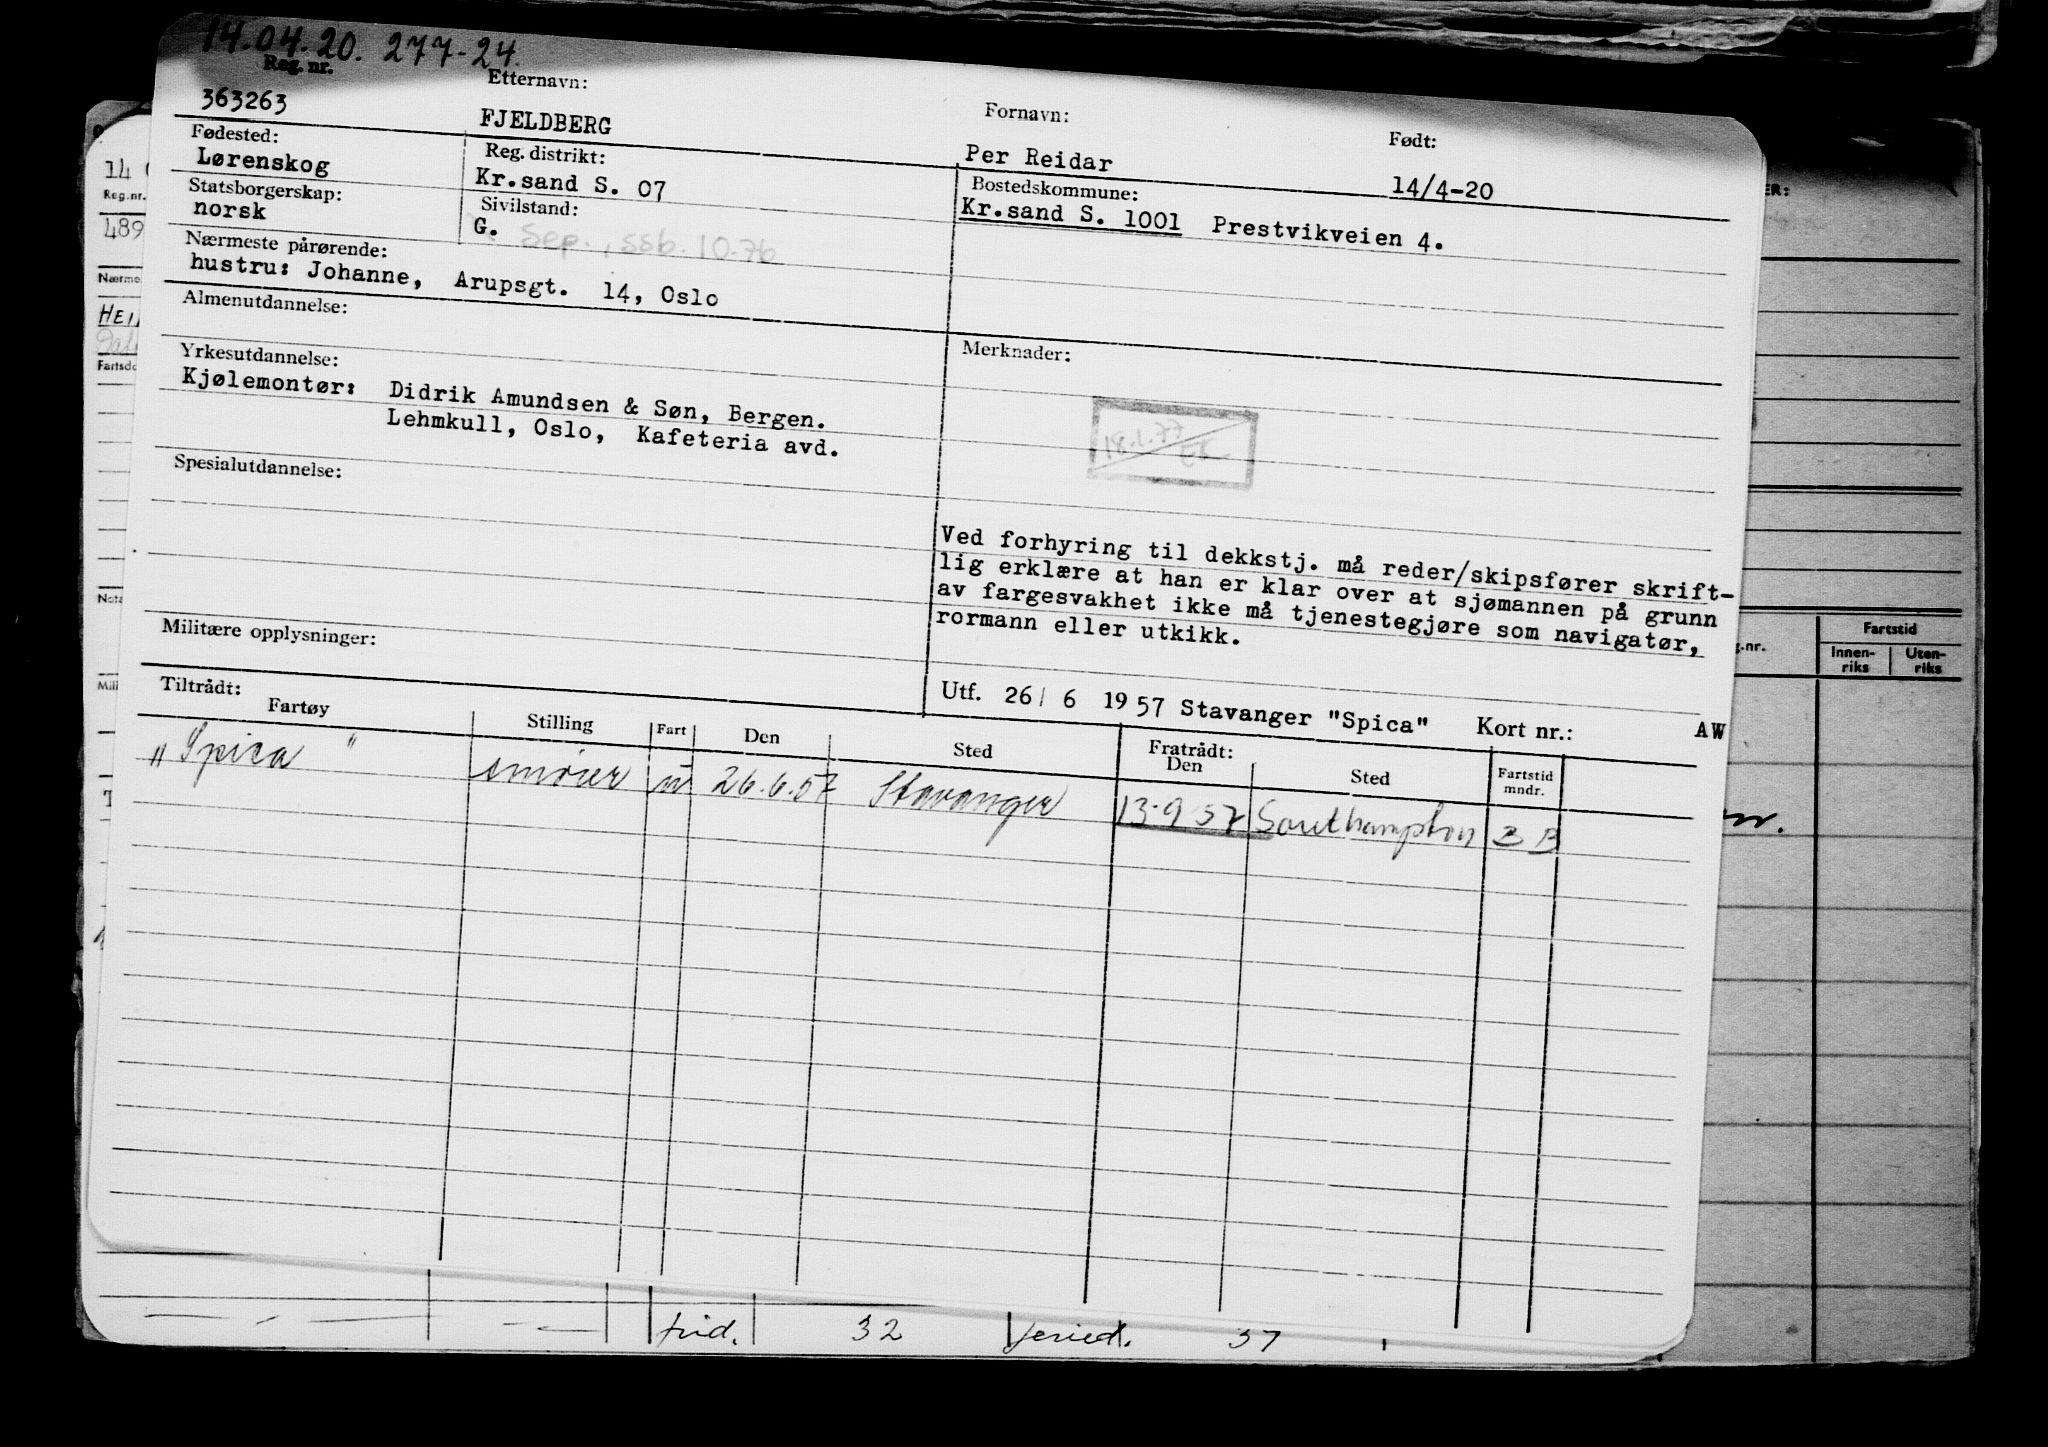 14.04.20. 277-24.
Reg. nr.
363263
Etternavn:
FJELDBERG
Fornavn:
Per Reidar
Født:
14/4-20
Fødested:
Lørenskog
Reg. distrikt:
Kr.sand S. 07
Bostedskommune:
Kr.sand S. 1001 Prestvikveien 4.
Statsborgerskap:
norsk
Sivilstand:
G. Sep., ssb. 10.76
Nærmeste pårørende:
hustru: Johanne, Arupsgt. 14, Oslo
Almenutdannelse:
Yrkesutdannelse:
Kjølemontør: Didrik Amundsen & Søn, Bergen.
Lehmkull, Oslo, Kafeteria avd.
Spesialutdannelse:
Militære opplysninger:
Merknader:
18.1.77
Ved forhyring til dekkstj. må reder/skipsfører skrift-
lig erklære at han er klar over at sjømannen på grunn
av fargesvakhet ikke må tjenestegjøre som navigatør,
rormann eller utkikk.
Utf. 26/6 1957 Stavanger "Spica" Kort nr.: AW
Tiltrådt:
Fartøy Stilling Fart Den Sted Fratrådt: Den Sted Fartstid mndr.
"Spica" smører u 26.6.57 Stavanger 13.9 57 Southampton B B
14
Reg.nr.
489
Fartstid
Innen-
riks
Uten-
riks
32
37